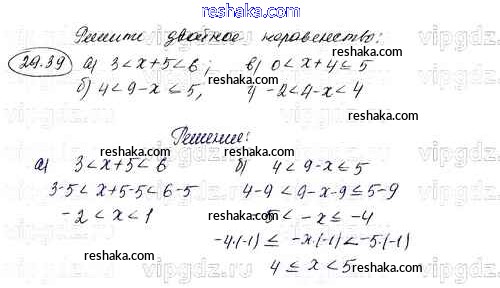 reshak.ru
Решите двойное неравенство:
29.39 а) 3 < x + 5 < 6; в) 0 < x + 4 ≤ 5
б) 4 < 9 - x ≤ 5, г) -2 < 4 - x < 4
Решение:
а) 3 < x + 5 < 6 б) 4 < 9 - x ≤ 5
3-5 < x + 5-5 < 6-5 4-9 < 9-x-9 ≤ 5-9
-2 < x < 1 -5 < -x ≤ -4
-4·(-1) ≤ -x·(-1) < -5·(-1)
4 ≤ x < 5
reshaka.com
reshaka.com
reshaka.com
reshaka.com
reshaka.com
reshaka.com
reshaka.com
reshaka.com
vipgdz.ru
vipgdz.ru
vipgdz.ru
vipgdz.ru